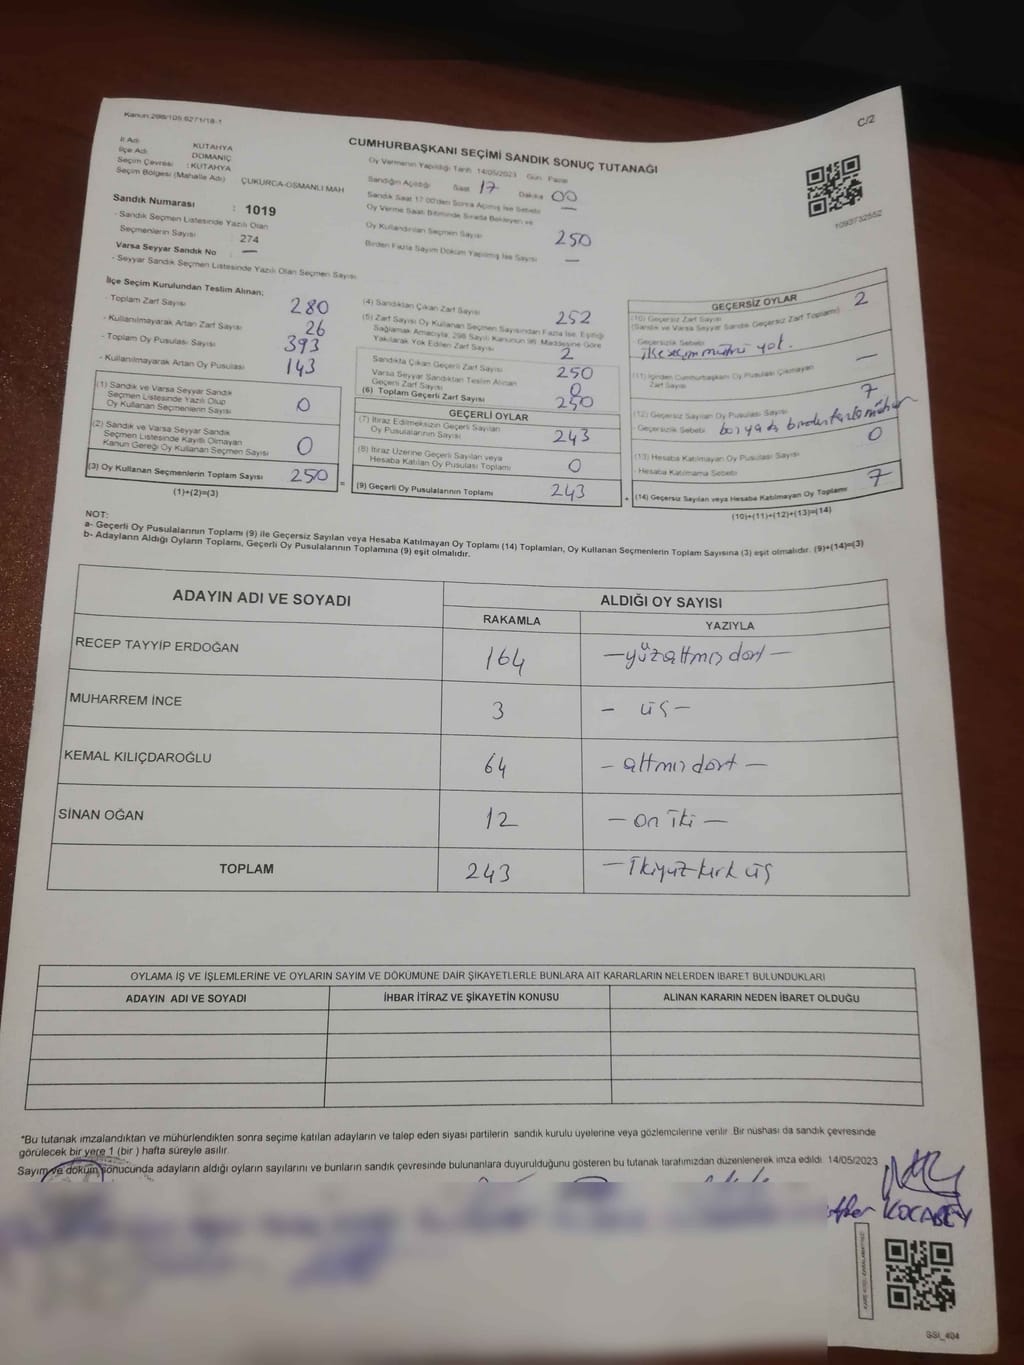 Kanun:298/105,6271/18-1
C/2
CUMHURBAŞKANI SEÇİMİ SANDIK SONUÇ TUTANAĞI
İl Adı : KÜTAHYA
İlçe Adı : DOMANİÇ
Seçim Çevresi : KÜTAHYA
Seçim Bölgesi (Mahalle Adı) : ÇUKURCA-OSMANLI MAH
Sandık Numarası : 1019
- Sandık Seçmen Listesinde Yazılı Olan
Seçmenlerin Sayısı : 274
Varsa Seyyar Sandık No : —
- Seyyar Sandık Seçmen Listesinde Yazılı Olan Seçmen Sayısı
Oy Vermenin Yapıldığı Tarih 14/05/2023 Gün: Pazar
Sandığın Açıldığı Saat 17 Dakika 00
Sandık Saat 17:00'den Sonra Açılmış İse Sebebi —
Oy Verme Saati Bitiminde Sırada Bekleyen ve
Oy Kullandırılan Seçmen Sayısı 250
Birden Fazla Sayım Döküm Yapılmış İse Sayısı —
1093732552
İlçe Seçim Kurulundan Teslim Alınan;
- Toplam Zarf Sayısı 280
- Kullanılmayarak Artan Zarf Sayısı 26
- Toplam Oy Pusulası Sayısı 393
- Kullanılmayarak Artan Oy Pusulası 143
(1) Sandık ve Varsa Seyyar Sandık
Seçmen Listesinde Yazılı Olup
Oy Kullanan Seçmenlerin Sayısı 0
(2) Sandık ve Varsa Seyyar Sandık
Seçmen Listesinde Kayıtlı Olmayan
Kanun Gereği Oy Kullanan Seçmen Sayısı 0
(3) Oy Kullanan Seçmenlerin Toplam Sayısı 250 =
(1)+(2)=(3)
(4) Sandıktan Çıkan Zarf Sayısı 252
(5) Zarf Sayısı Oy Kullanan Seçmen Sayısından Fazla İse, Eşitliği
Sağlamak Amacıyla, 298 Sayılı Kanunun 98. Maddesine Göre
Yakılarak Yok Edilen Zarf Sayısı 2
Sandıkta Çıkan Geçerli Zarf Sayısı 250
Varsa Seyyar Sandıktan Teslim Alınan
Geçerli Zarf Sayısı 0
(6) Toplam Geçerli Zarf Sayısı 250
GEÇERLİ OYLAR
(7) İtiraz Edilmeksizin Geçerli Sayılan
Oy Pusulalarının Sayısı 243
(8) İtiraz Üzerine Geçerli Sayılan veya
Hesaba Katılan Oy Pusulası Toplamı 0
(9) Geçerli Oy Pusulalarının Toplamı 243 +
GEÇERSİZ OYLAR
(10) Geçersiz Zarf Sayısı 2
(Sandık ve Varsa Seyyar Sandık Geçersiz Zarf Toplamı)
Geçersizlik Sebebi: ilçe seçim mührü yok.
(11) İçinden Cumhurbaşkanı Oy Pusulası Çıkmayan
Zarf Sayısı —
(12) Geçersiz Sayılan Oy Pusulası Sayısı 7
- Geçersizlik Sebebi boş ya da birden fazla mühür
(13) Hesaba Katılmayan Oy Pusulası Sayısı 0
- Hesaba Katılmama Sebebi
(14) Geçersiz Sayılan veya Hesaba Katılmayan Oy Toplamı 7
(10)+(11)+(12)+(13)=(14)
NOT:
a- Geçerli Oy Pusulalarının Toplamı (9) ile Geçersiz Sayılan veya Hesaba Katılmayan Oy Toplamı (14) Toplamları, Oy Kullanan Seçmenlerin Toplam Sayısına (3) eşit olmalıdır. (9)+(14)=(3)
b- Adayların Aldığı Oyların Toplamı, Geçerli Oy Pusulalarının Toplamına (9) eşit olmalıdır.
ADAYIN ADI VE SOYADI ALDIĞI OY SAYISI
RAKAMLA YAZIYLA
RECEP TAYYİP ERDOĞAN 164 —yüzaltmış dört—
MUHARREM İNCE 3 — üç —
KEMAL KILIÇDAROĞLU 64 — altmış dört —
SİNAN OĞAN 12 — on iki —
TOPLAM 243 — ikiyüz kırk üç
OYLAMA İŞ VE İŞLEMLERİNE VE OYLARIN SAYIM VE DÖKÜMÜNE DAİR ŞİKAYETLERLE BUNLARA AİT KARARLARIN NELERDEN İBARET BULUNDUKLARI
ADAYIN ADI VE SOYADI İHBAR İTİRAZ VE ŞİKAYETİN KONUSU ALINAN KARARIN NEDEN İBARET OLDUĞU
*Bu tutanak imzalandıktan ve mühürlendikten sonra seçime katılan adayların ve talep eden siyasi partilerin sandık kurulu üyelerine veya gözlemcilerine verilir. Bir nüshası da sandık çevresinde
görülecek bir yere 1 (bir ) hafta süreyle asılır.
Sayım ve döküm sonucunda adayların aldığı oyların sayılarını ve bunların sandık çevresinde bulunanlara duyurulduğunu gösteren bu tutanak tarafımızdan düzenlenerek imza edildi. 14/05/2023
KOCABEY
SSI_404